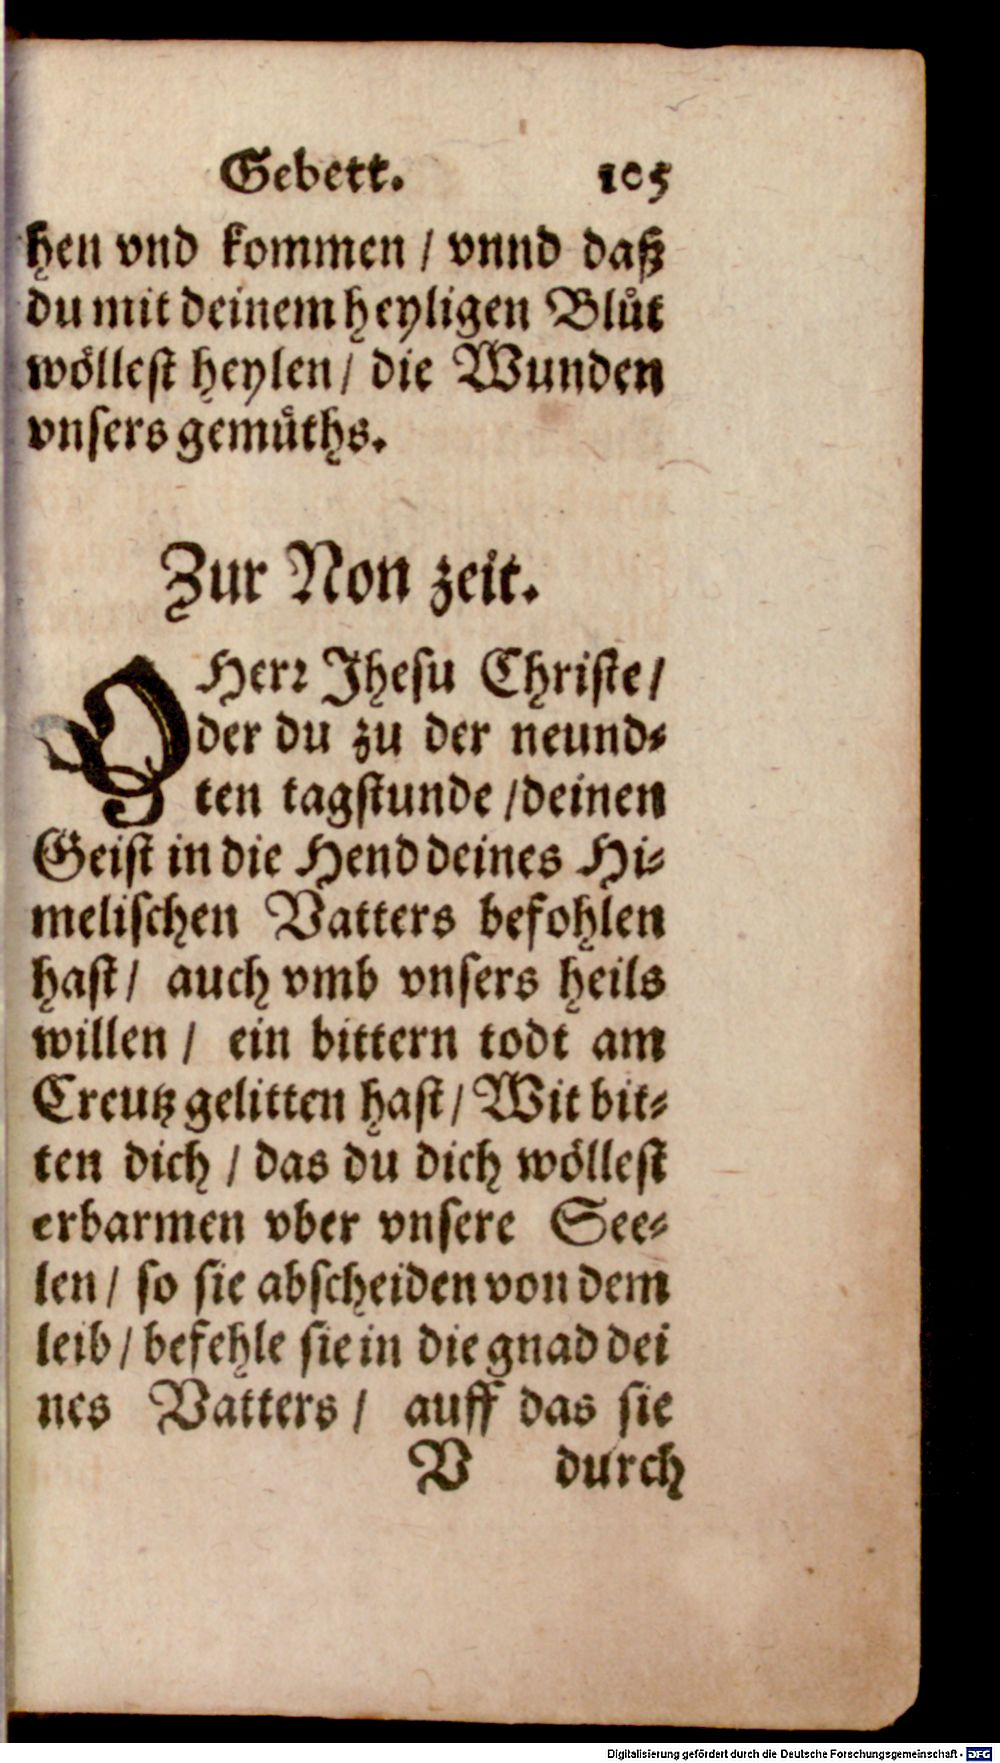 Gebett. 105
hen vnd kommen / vnnd daß
du mit deinem heyligen Bluͦt
woͤllest heylen / die Wunden
vnsers gemuͤths.
Zur Non zeit.
O Herr Jhesu Christe /
der du zu der neund⸗
ten tagstunde / deinen
Geist in die Hend deines Hi⸗
melischen Vatters befohlen
hast / auch vmb vnsers heils
willen / ein bittern todt am
Creutz gelitten hast / Wit bit⸗
ten dich / das du dich woͤllest
erbarmen vber vnsere See⸗
len / so sie abscheiden von dem
leib / befehle sie in die gnad dei
nes Vatters / auff das sie
V durch
Digitalisierung gefördert durch die Deutsche Forschungsgemeinschaft - DFG